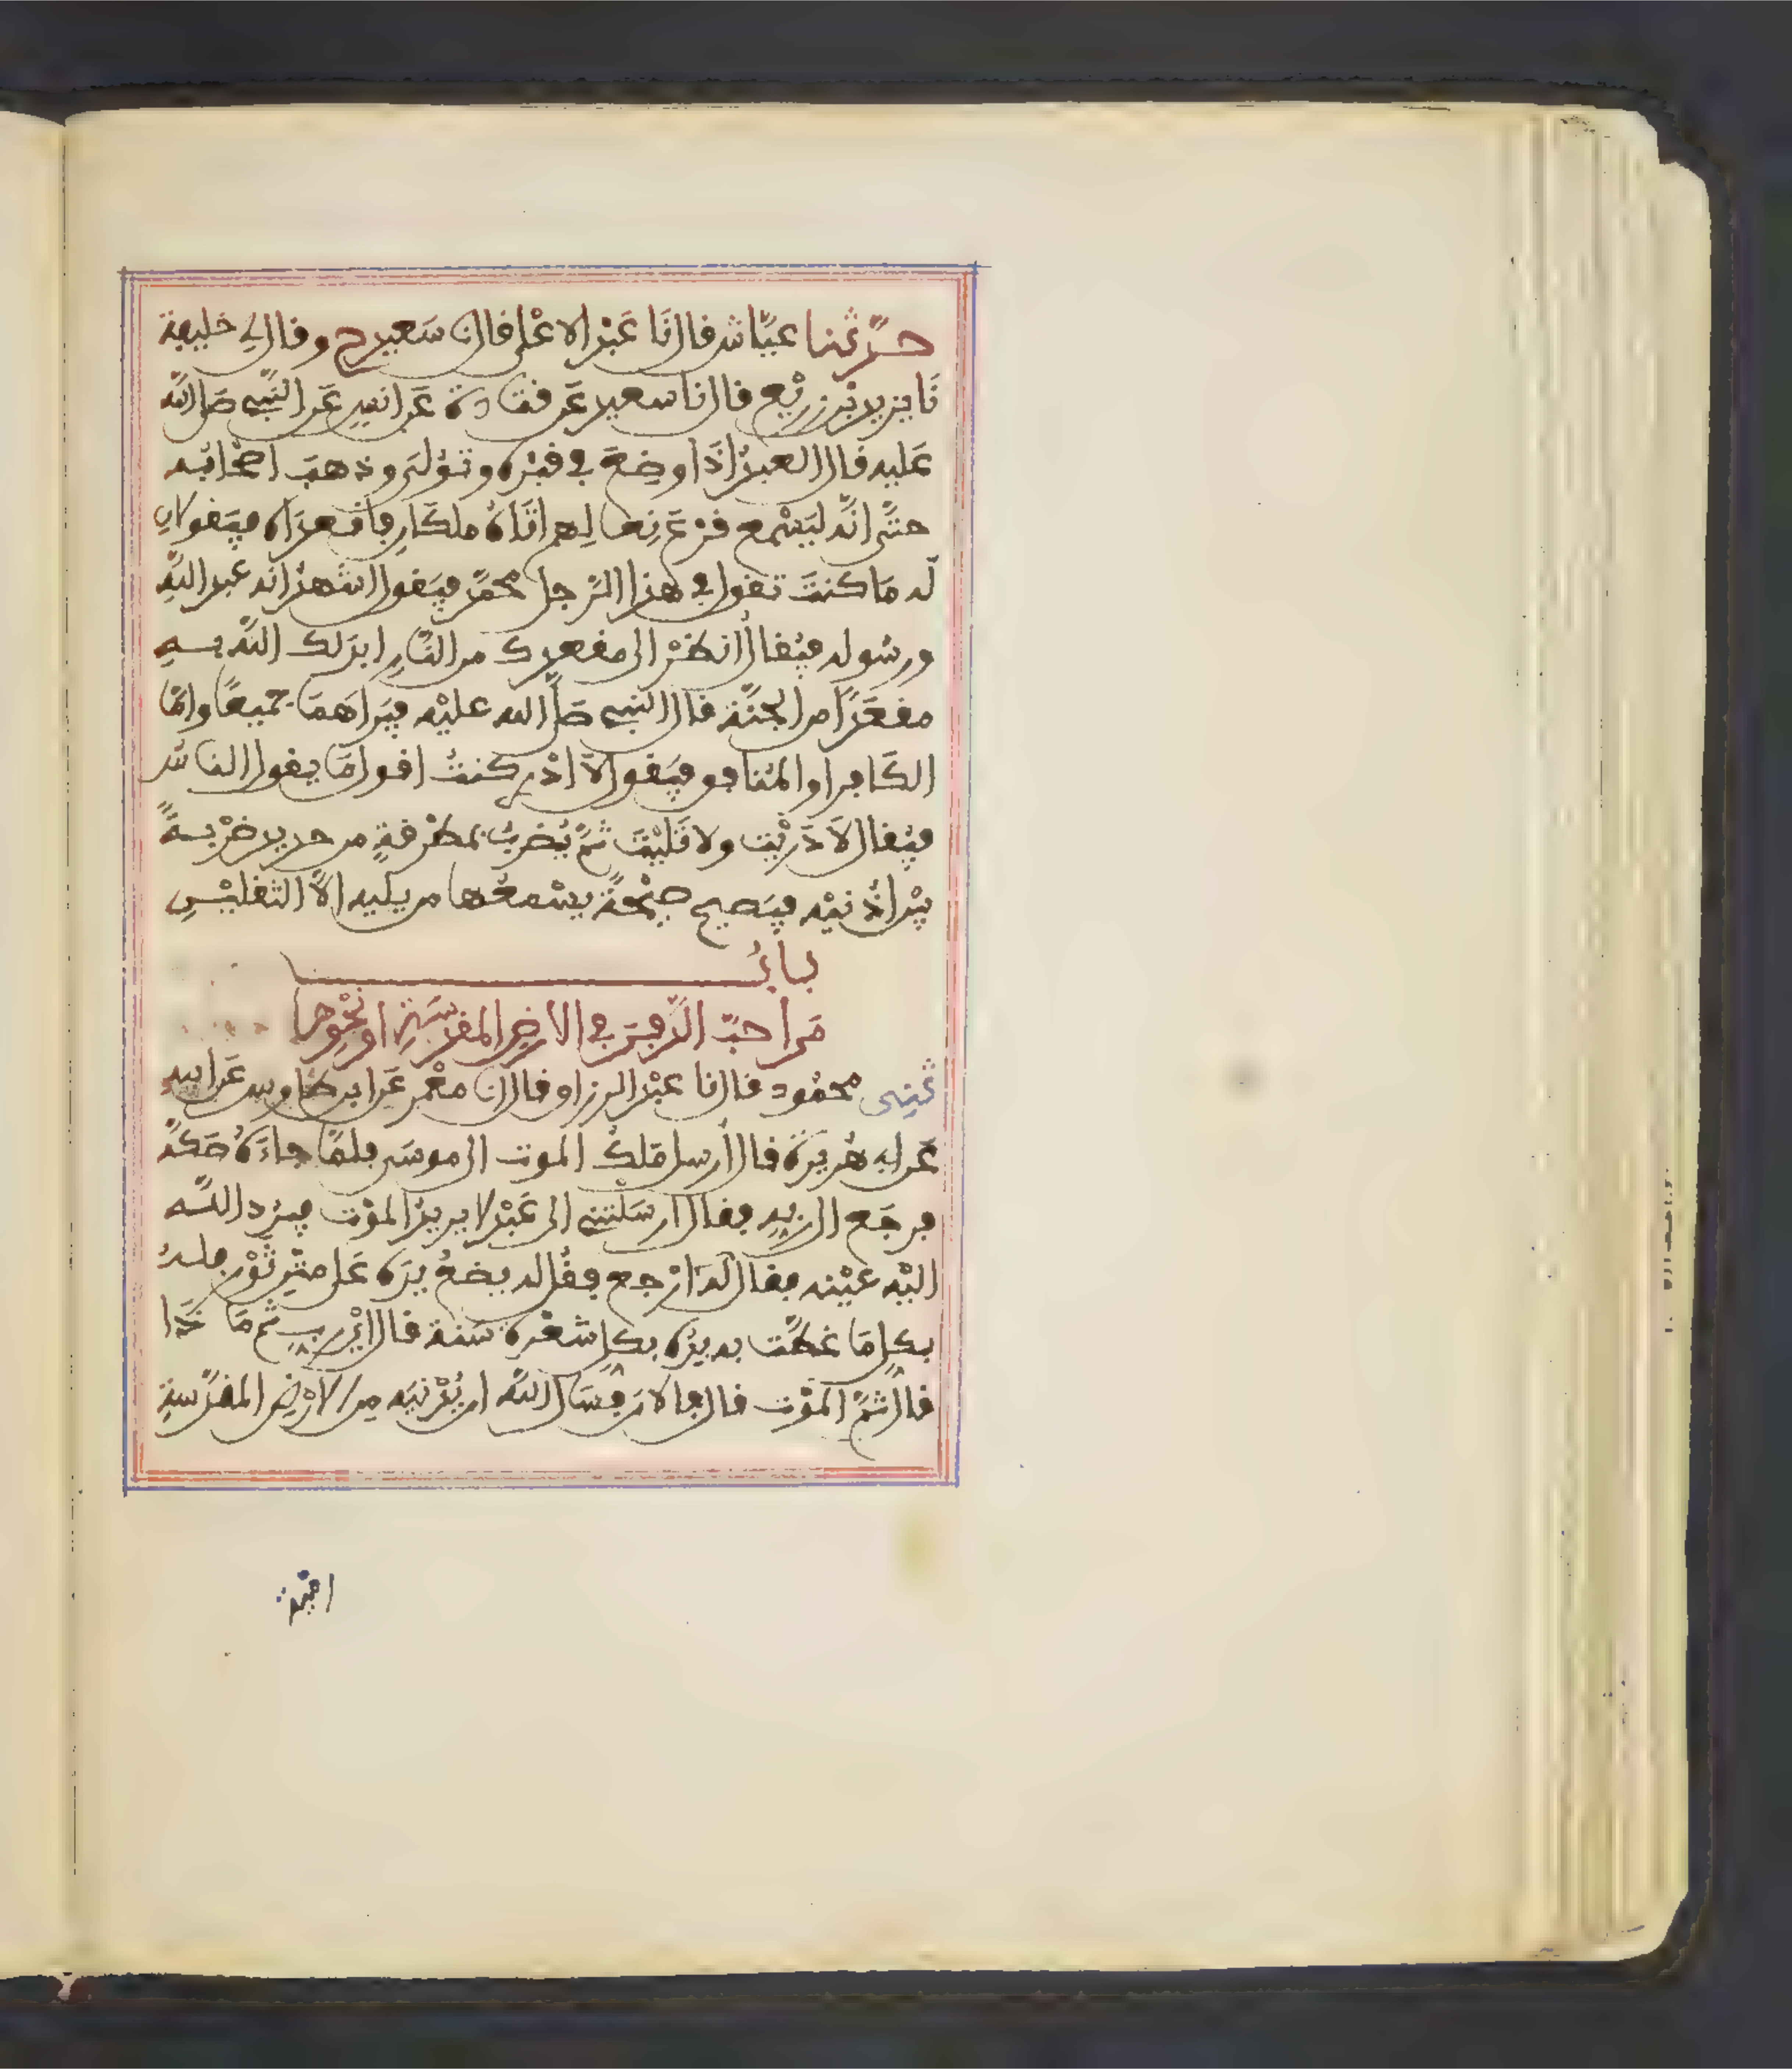 حدّثنا عيّاش فال نَا عَبْد الاعْلى فال نا سَعيد ح وفال لي خليفة
نَا يزيد بْن زريْع فال نا سعيد عَن فتادة عَن انسٍ عَن النّبي صَلى اللّه
عَليه فال العبدُ اذَا وضعَ في فبْرهِ وتوُلىَ وذهبَ اصْحَابُه
حتّى انّه ليَسْمع فرْعَ نِعالِهم اتَاهُ ملكَان فافعدَاه فيَفولانِ
لَه مَا كنتَ تفول في هذا الرّجل محمّد فيَفول اشْهدُ انه عبد اللّهِ
ورسُوله فيُفال انظرْ الى مفعدِك من النّارِ ابدَلك اللّه بهِ
مفعَدًا من الجنّة فال النبي صَلّى الله عليْه فيَراهمَا جَميعًا وامّا
الكَافر او المُنافو فيَفول لاَ ادْرِي كنتُ افول مَا يفول النَاس
فيُفال لاَ دَرَيْت ولا تَليْتَ ثمّ يُضربُ بمطْرفةٍ من حديد ضرْبةً
بيْن اذْنيْه فيَصيح صيْحةً يسْمعُها من يليه الاّ الثفليْنِ
بابُ
مَن احبّ الدّفنَ في الارضِ المفدّسَةِ او نحْوِها
ثنِي محمُود فال نا عبْد الرزاو فال نا معْمر عَن ابن طاوس عَن ابيهِ
عَن ابي هُريرَة فال أرسل مَلكُ الموت الى موسَى فلمّا جاءَهُ صَكهُ
فرجَع الى ربهِ ففال ارسَلْتني الى عَبْد لا يريدُ الموْت فيرُد اللّه
اليْه عيْنه ففال لَه ارْجع ففُل له يضعُ يدَه عَلى متْنِ ثوْرٍ فلهُ
بكلِ مَا غطَّت به يدُه بكلِ شعْرة سَنة فال ايْ رب ثم مَا ذَا
فال ثمّ الموْت فال فالان فسَال اللّه ان يُدْنيَه مِن الارْضِ المفدّسةِ